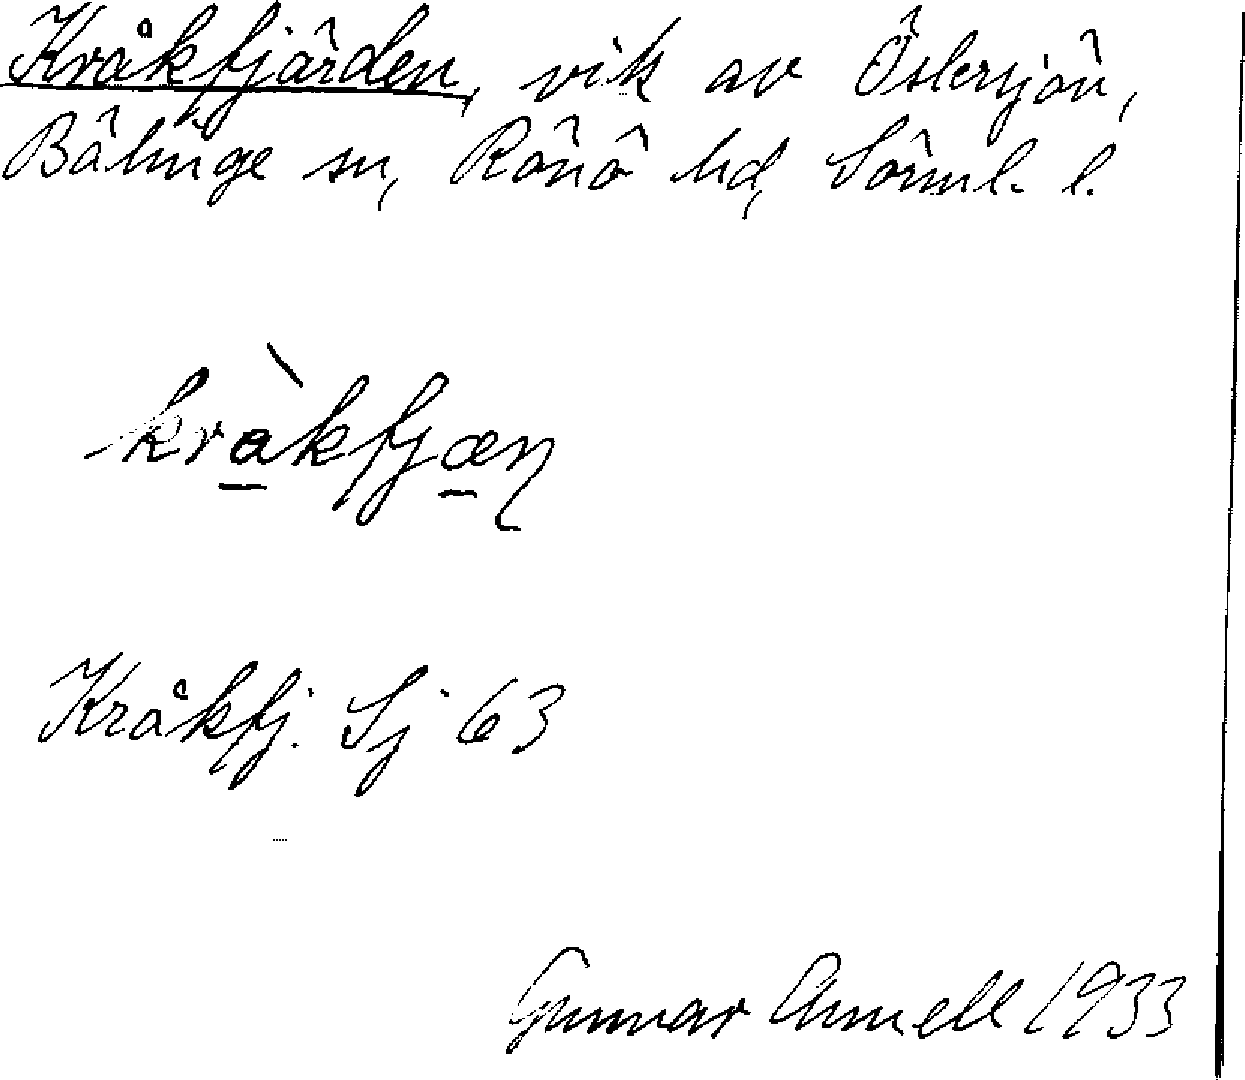 Kråkfjärden, vik av Östersjön,
Bälinge sn, Rönö hd, Sörml. l.
kràkfjæn
Kråkfj. Sj 63
Gunnar Annell 1933